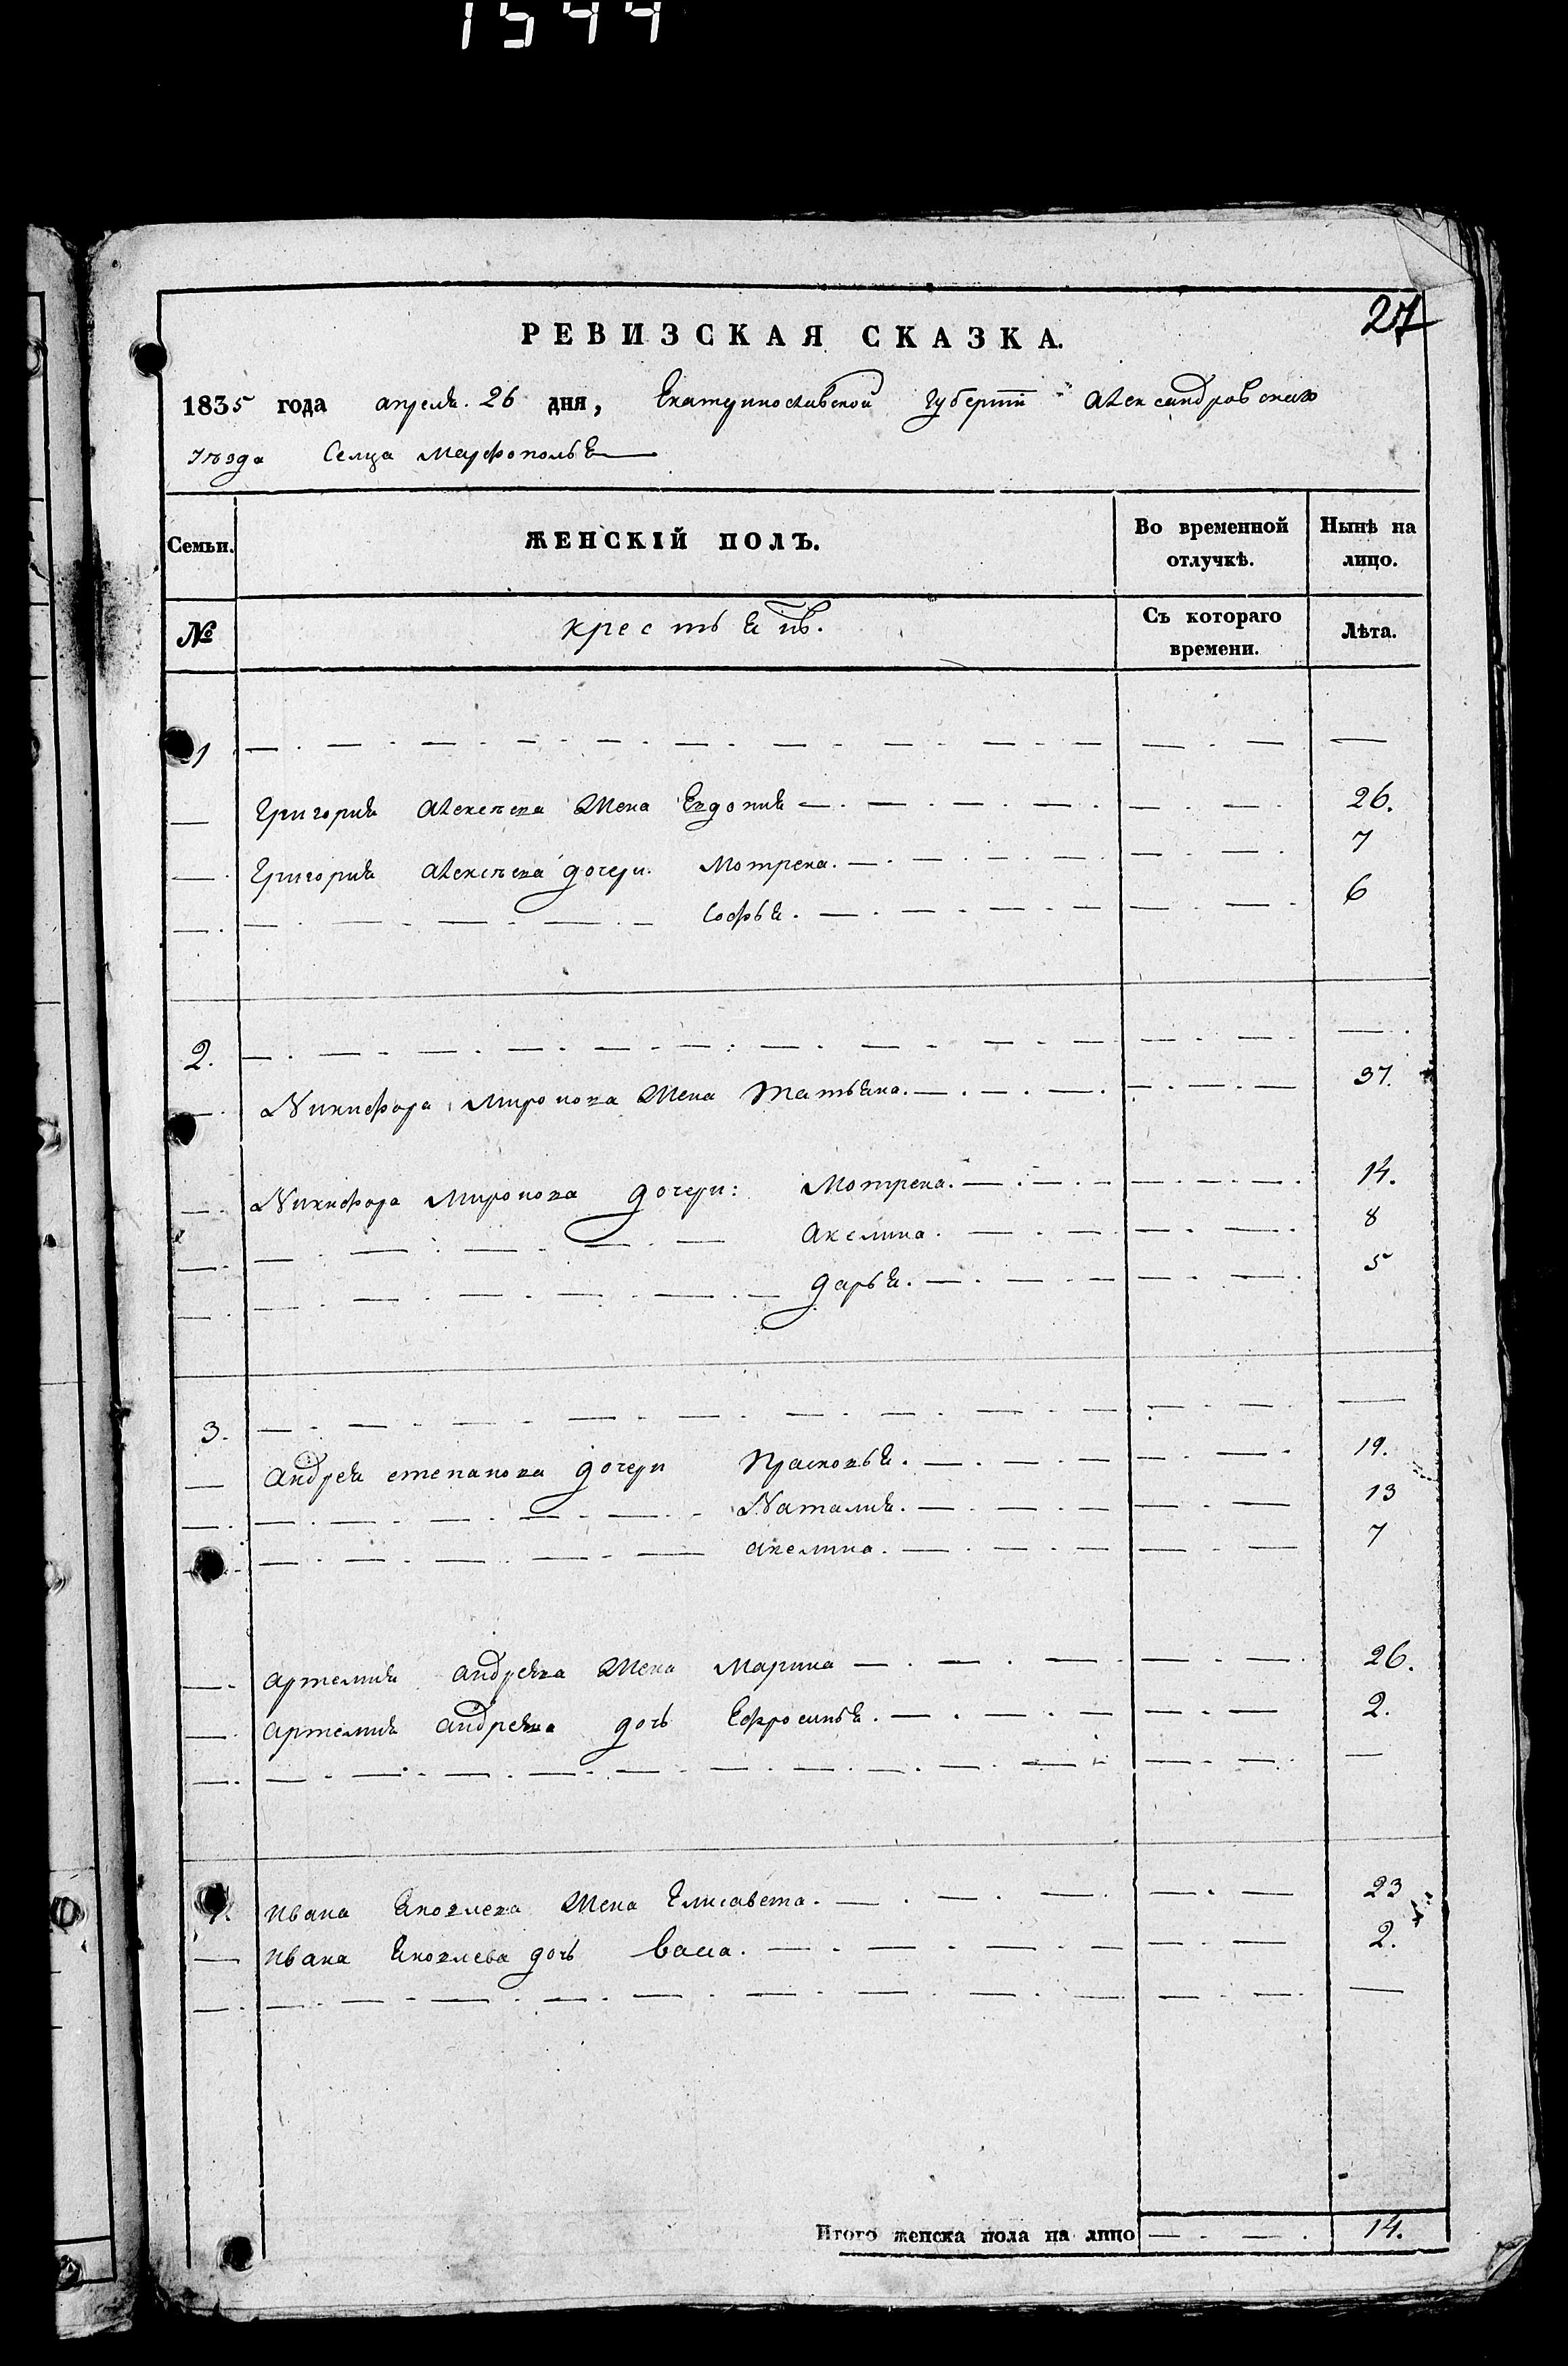 1544
27
РЕВИЗСКАЯ СКАЗКА.
1835 года апреля 26 дня, Екатеринославской Губернии Александровскаго
уѣзда Сельца Марфополья
Семьи. ЖЕНСКІЙ ПОЛЪ. Во временной отлучкѣ. Нынѣ на лицо.
№ крестьянъ. Съ котораго времени. Лѣта.
1
Григория Алексѣева жена Евдокия 26.
Григория Алексѣева дочери Мотрена. 7
Софья. 6
2.
Никифора Миронова жена Татьяна. 37.
Никифора Миронова дочери: Мотрена. 14.
Акслина. 8
Дарья. 5
3.
Андрея степанова дочери Прасковья. 19.
Наталия. 13
акелина. 7
артемия андреева жена Марина 26.
артемия андреева дочь Ефросинья. 2.
4. ивана Яковлева жена Елисавета. 23
ивана Яковлева дочь Васа. 2.
Итого женска пола на лицо 14.